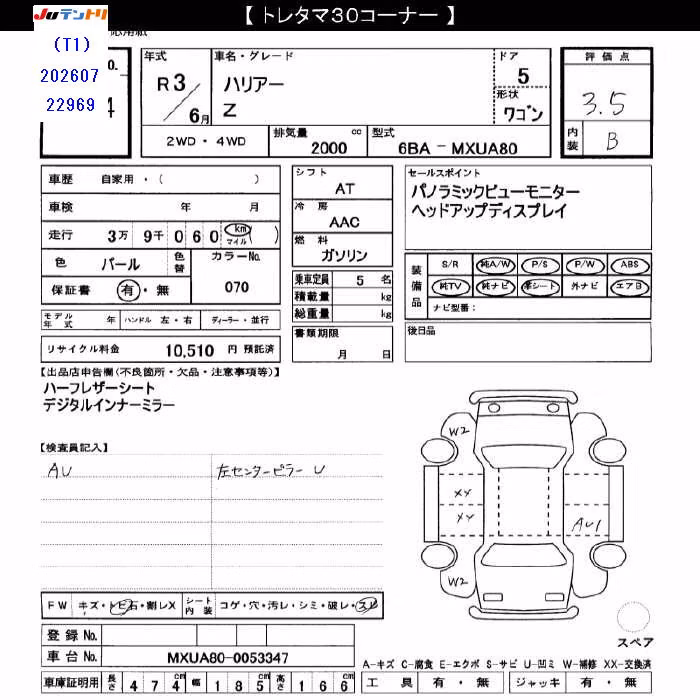 【 トレタマ30コーナー 】
JUテントリ
(T1)
202607
22969
年式
R 3 / 6 月
車名・グレード
ハリアー
Z
ドア
5
形状
ワゴン
評価点
3.5
内装
B
2WD・4WD
排気量
2000 cc
型式
6BA - MXUA80
車歴 自家用・( )
車検 年 月
走行 3万 9千 0 6 0 km マイル )
色 パール
色替
カラーNo.
070
保証書 有・無
モデル年式 年 ハンドル 左・右 ディーラー・並行
リサイクル料金 10,510 円 預託済
シフト
AT
冷房
AAC
燃料
ガソリン
乗車定員 5 名
積載量 kg
総重量 kg
書類期限
月 日
セールスポイント
パノラミックビューモニター
ヘッドアップディスプレイ
装備品
S/R 純A/W P/S P/W ABS
純TV 純ナビ 革シート 外ナビ エアB
ナビ型番:
後日品
【出品店申告欄(不良箇所・欠品・注意事項等)】
ハーフレザーシート
デジタルインナーミラー
【検査員記入】
AU
左センターピラー U
W2
XX
XX
AU1
W2
スペア
FW キズ・トビ石・割レX
シート内装 コゲ・穴・汚レ・シミ・破レ・スレ
登録 No.
車台 No. MXUA80-0053347
車庫証明用 長さ 4 7 4 cm 幅 1 8 5 cm 高さ 1 6 6 cm
A-キズ C-腐食 E-エクボ S-サビ U-凹ミ W-補修 XX-交換済
工具 有・無 ジャッキ 有・無